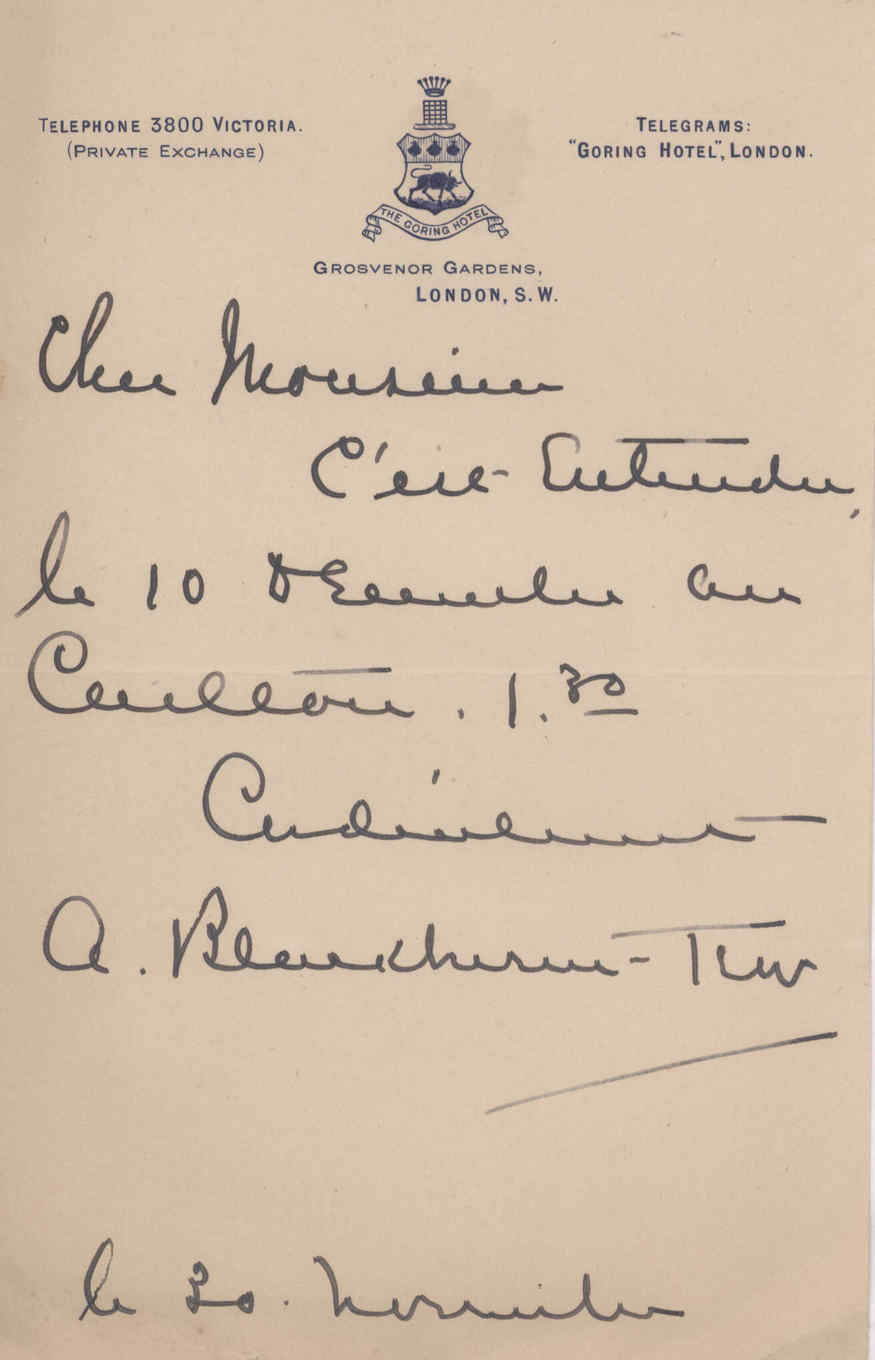 TELEPHONE 3800 VICTORIA.
(PRIVATE EXCHANGE)
TELEGRAMS:
"GORING HOTEL", LONDON.
THE GORING HOTEL
GROSVENOR GARDENS,
LONDON, S.W.
Cher Monsieur
C'est Entendu,
le 10 Décembre au
Carlton. 1.30
Cordialement
A.
le Novembre